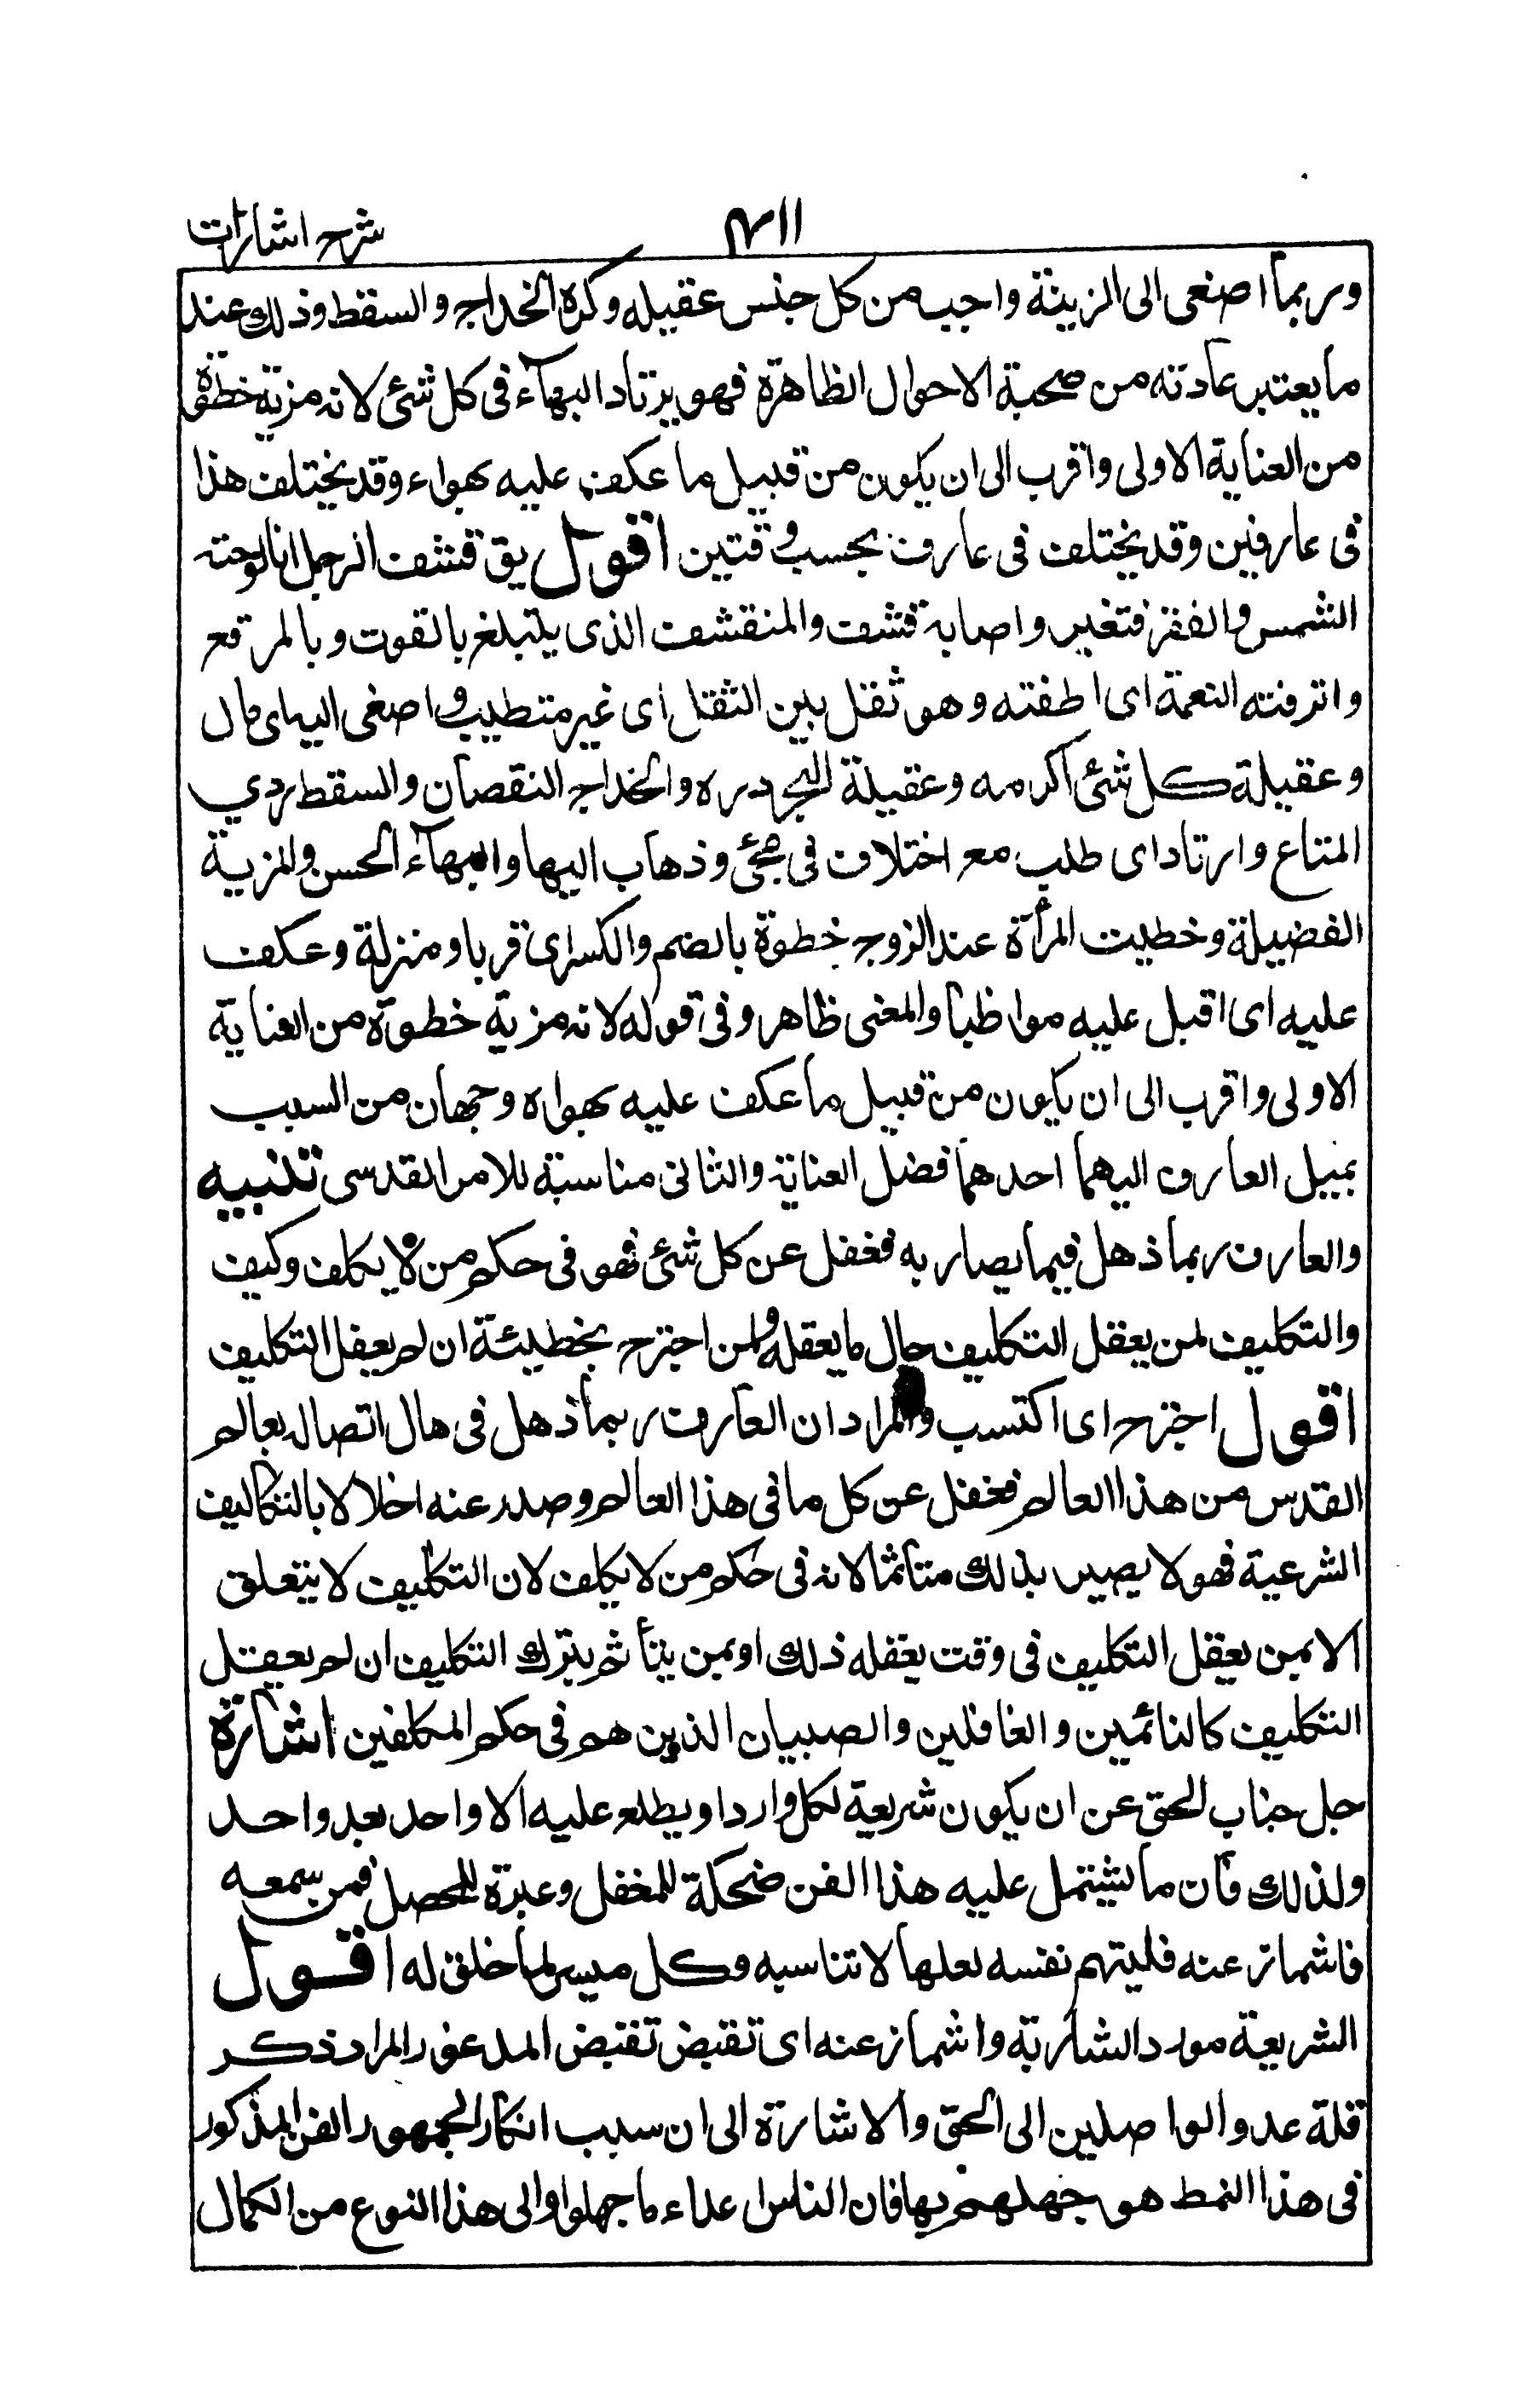 شرح اشارات
وربما اصغى الى الزينة واحب من كل جنس عقيله وكره الخداج والسقط وذلك عند
ما يعتبر عادته من صحبة الاحوال الظاهرة فهو يرتاد البهآء فى كل شئ لانه مزية خطوة
من العناية الاولى واقرب الى ان يكون من قبيل ما عكف عليه بهواء وقد يختلف هذا
فى عارفين وقد يختلف فى عارف بحسب وقتين اقول يق قشف الرجل اذا لوحته
الشمس والفقر فتغير واصابه قشف والمتقشف الذى يتبلغ بالقوت وبالمرقع
واترفته النعمة اى اطغته وهو ثقل بين الثقل اى غير متطيب واصغى اليه اى مال
وعقيلة كل شئ اكرمه وعقيلة البحر دره والخداج النقصان والسقط ردي
المتاع وارتاد اى طلب مع اختلاف فى مجئ وذهاب اليها والبهآء الحسن والمزية
الفضيلة وخطيت المرأة عند الزوج خطوة بالضم والكسر اى قربا ومنزلة وعكف
عليه اى اقبل عليه مواظبا والمغنى ظاهر وفى قوله لانه مزية خطوة من العناية
الاولى واقرب الى ان يكون من قبيل ما عكف عليه بهواه وجهان من السبب
بميل العارف اليهما احدهما فضل العناية والثانى مناسبة للامر القدسى تنبيه
والعارف ربما ذهل فيما يصار به فغفل عن كل شئ فهو فى حكم من لا يكلف وكيف
والتكليف لمن يعقل التكليف حال ما يعقله ولمن اجترح بخطيئة ان لم يعقل التكليف
اقول اجترح اى اكتسب والمراد ان العارف ربما ذهل فى هال اتصاله بعالم
القدس من هذا العالم فغفل عن كل ما فى هذا العالم وصدر عنه اخلالا بالتكاليف
الشرعية فهو لا يصير بذلك متأثما لانه فى حكم من لا يكلف لان التكليف لا يتعلق
الا بمن يعقل التكليف فى وقت يعقله ذلك او بمن يتأثم بترك التكليف ان لم يعقل
التكليف كالنائمين والغافلين والصبيان الذين هم فى حكم المكلفين اشارة
جل جناب الحق عن ان يكون شريعة لكل وارد او يطلع عليه الا واحد بعد واحد
ولذلك فان ما يشتمل عليه هذا الفن ضحكة للمغفل وعبرة للمحصل فمن سمعه
فاشمازعنه فليتهم نفسه لعلها لا تناسبه وكل ميسر لما خلق له اقول
الشريعة مورد الشاربة واشمازعنه اى تقبض تقبض المدعو والمراد ذكر
قلة عدد الواصلين الى الحق والاشارة الى ان سبب انكار الجمهور الفن المذكور
فى هذا النمط هو جهلهم بها فان الناس اعداء ما جهلوا والى هذا النوع من الكمال